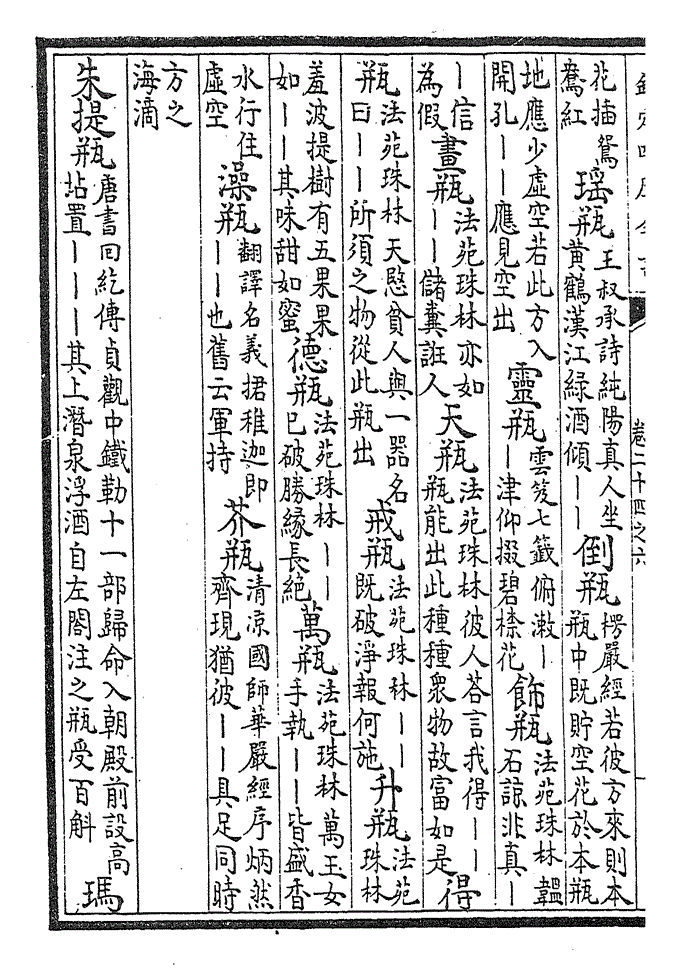 卷二十四之六
花插鴛鴦紅 瑶瓶 王叔承詩純陽真人坐黄鶴漢江緑酒傾丨丨 倒瓶 楞嚴經若彼方來則本瓶中既貯空花於本瓶
地應少虛空若此方入開孔丨丨應見空出 靈瓶 雲笈七籤俯漱丨丨津仰掇碧㮈花 飾瓶 法苑珠林韞石諒非真丨
丨信為假 畫瓶 法苑珠林亦如丨丨儲糞誑人 天瓶 法苑珠林彼人荅言我得丨丨瓶能出此種種衆物故富如是 得
瓶 法苑珠林天愍貧人與一器名曰丨丨所須之物從此瓶出 戒瓶 法苑珠林丨丨既破淨報何施 升瓶 法苑珠林
羞波提樹有五果果如丨丨其味甜如蜜 德瓶 法苑珠林丨丨已破勝緣長絶 萬瓶 法苑珠林萬玉女手執丨丨皆盛香
水行住虛空 澡瓶 翻譯名義捃稚迦即丨丨也舊云軍持 芥瓶 清涼國師華嚴經序炳然齊現猶彼丨丨具足同時
方之海滴
朱提瓶 唐書回紇傳貞觀中鐵勒十一部歸命入朝殿前設高坫置丨丨丨其上潛泉浮酒自左閣注之瓶受百斛 瑪